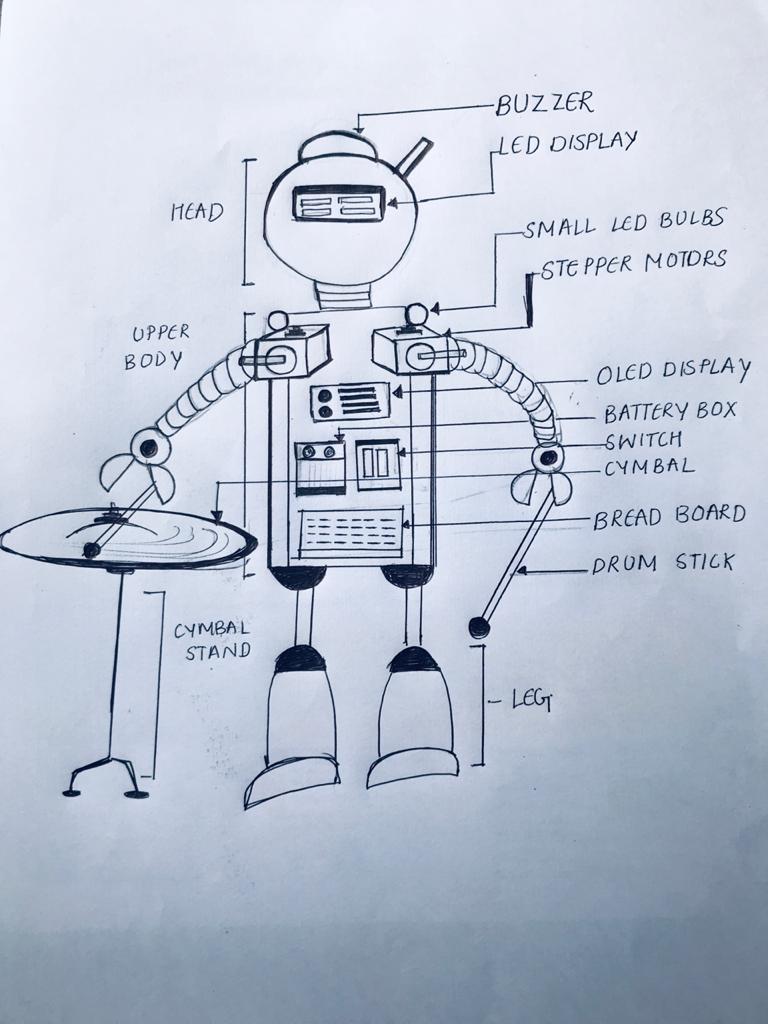 BUZZER
LED DISPLAY
HEAD
SMALL LED BULBS
STEPPER MOTORS
UPPER
BODY
OLED DISPLAY
BATTERY BOX
SWITCH
CYMBAL
BREAD BOARD
DRUM STICK
CYMBAL
STAND
LEG